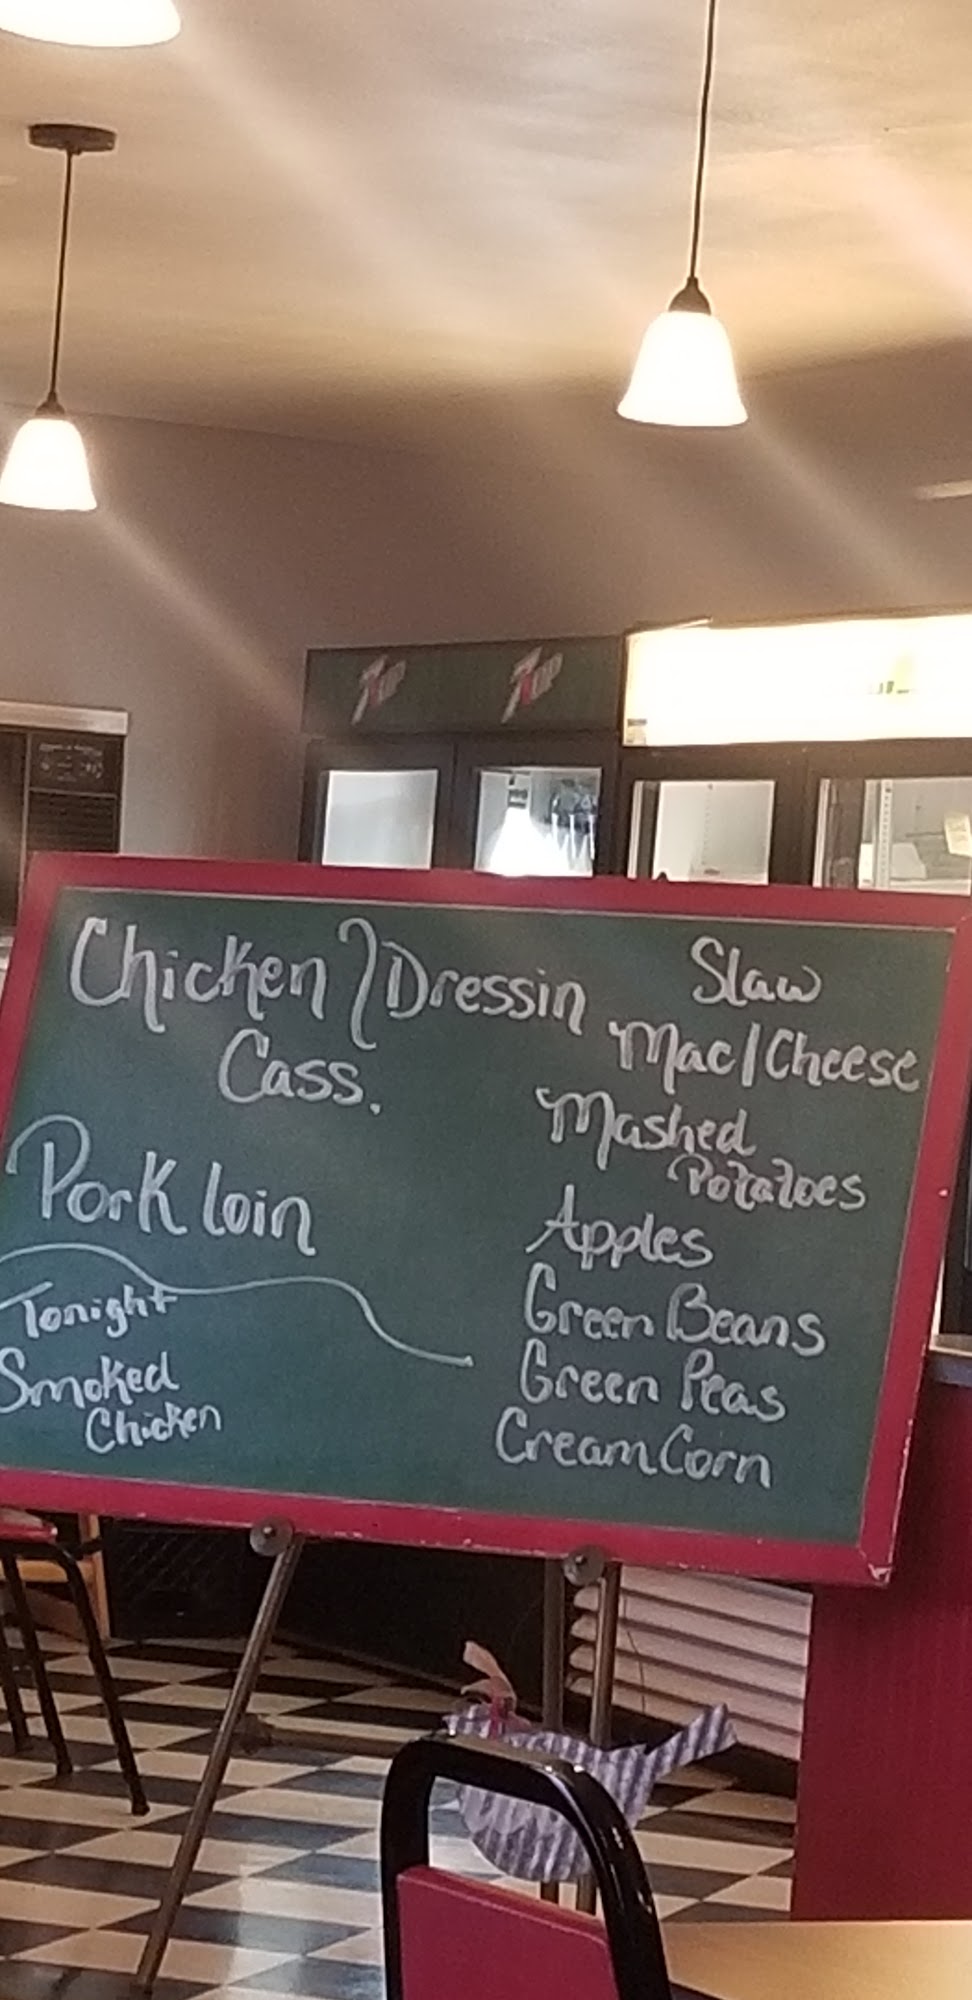 7UP
7UP
Chicken & Dressin
Cass.
Pork loin
Tonight
Smoked
Chicken
Slaw
Mac/Cheese
Mashed
Potatoes
Apples
Green Beans
Green Peas
Cream Corn